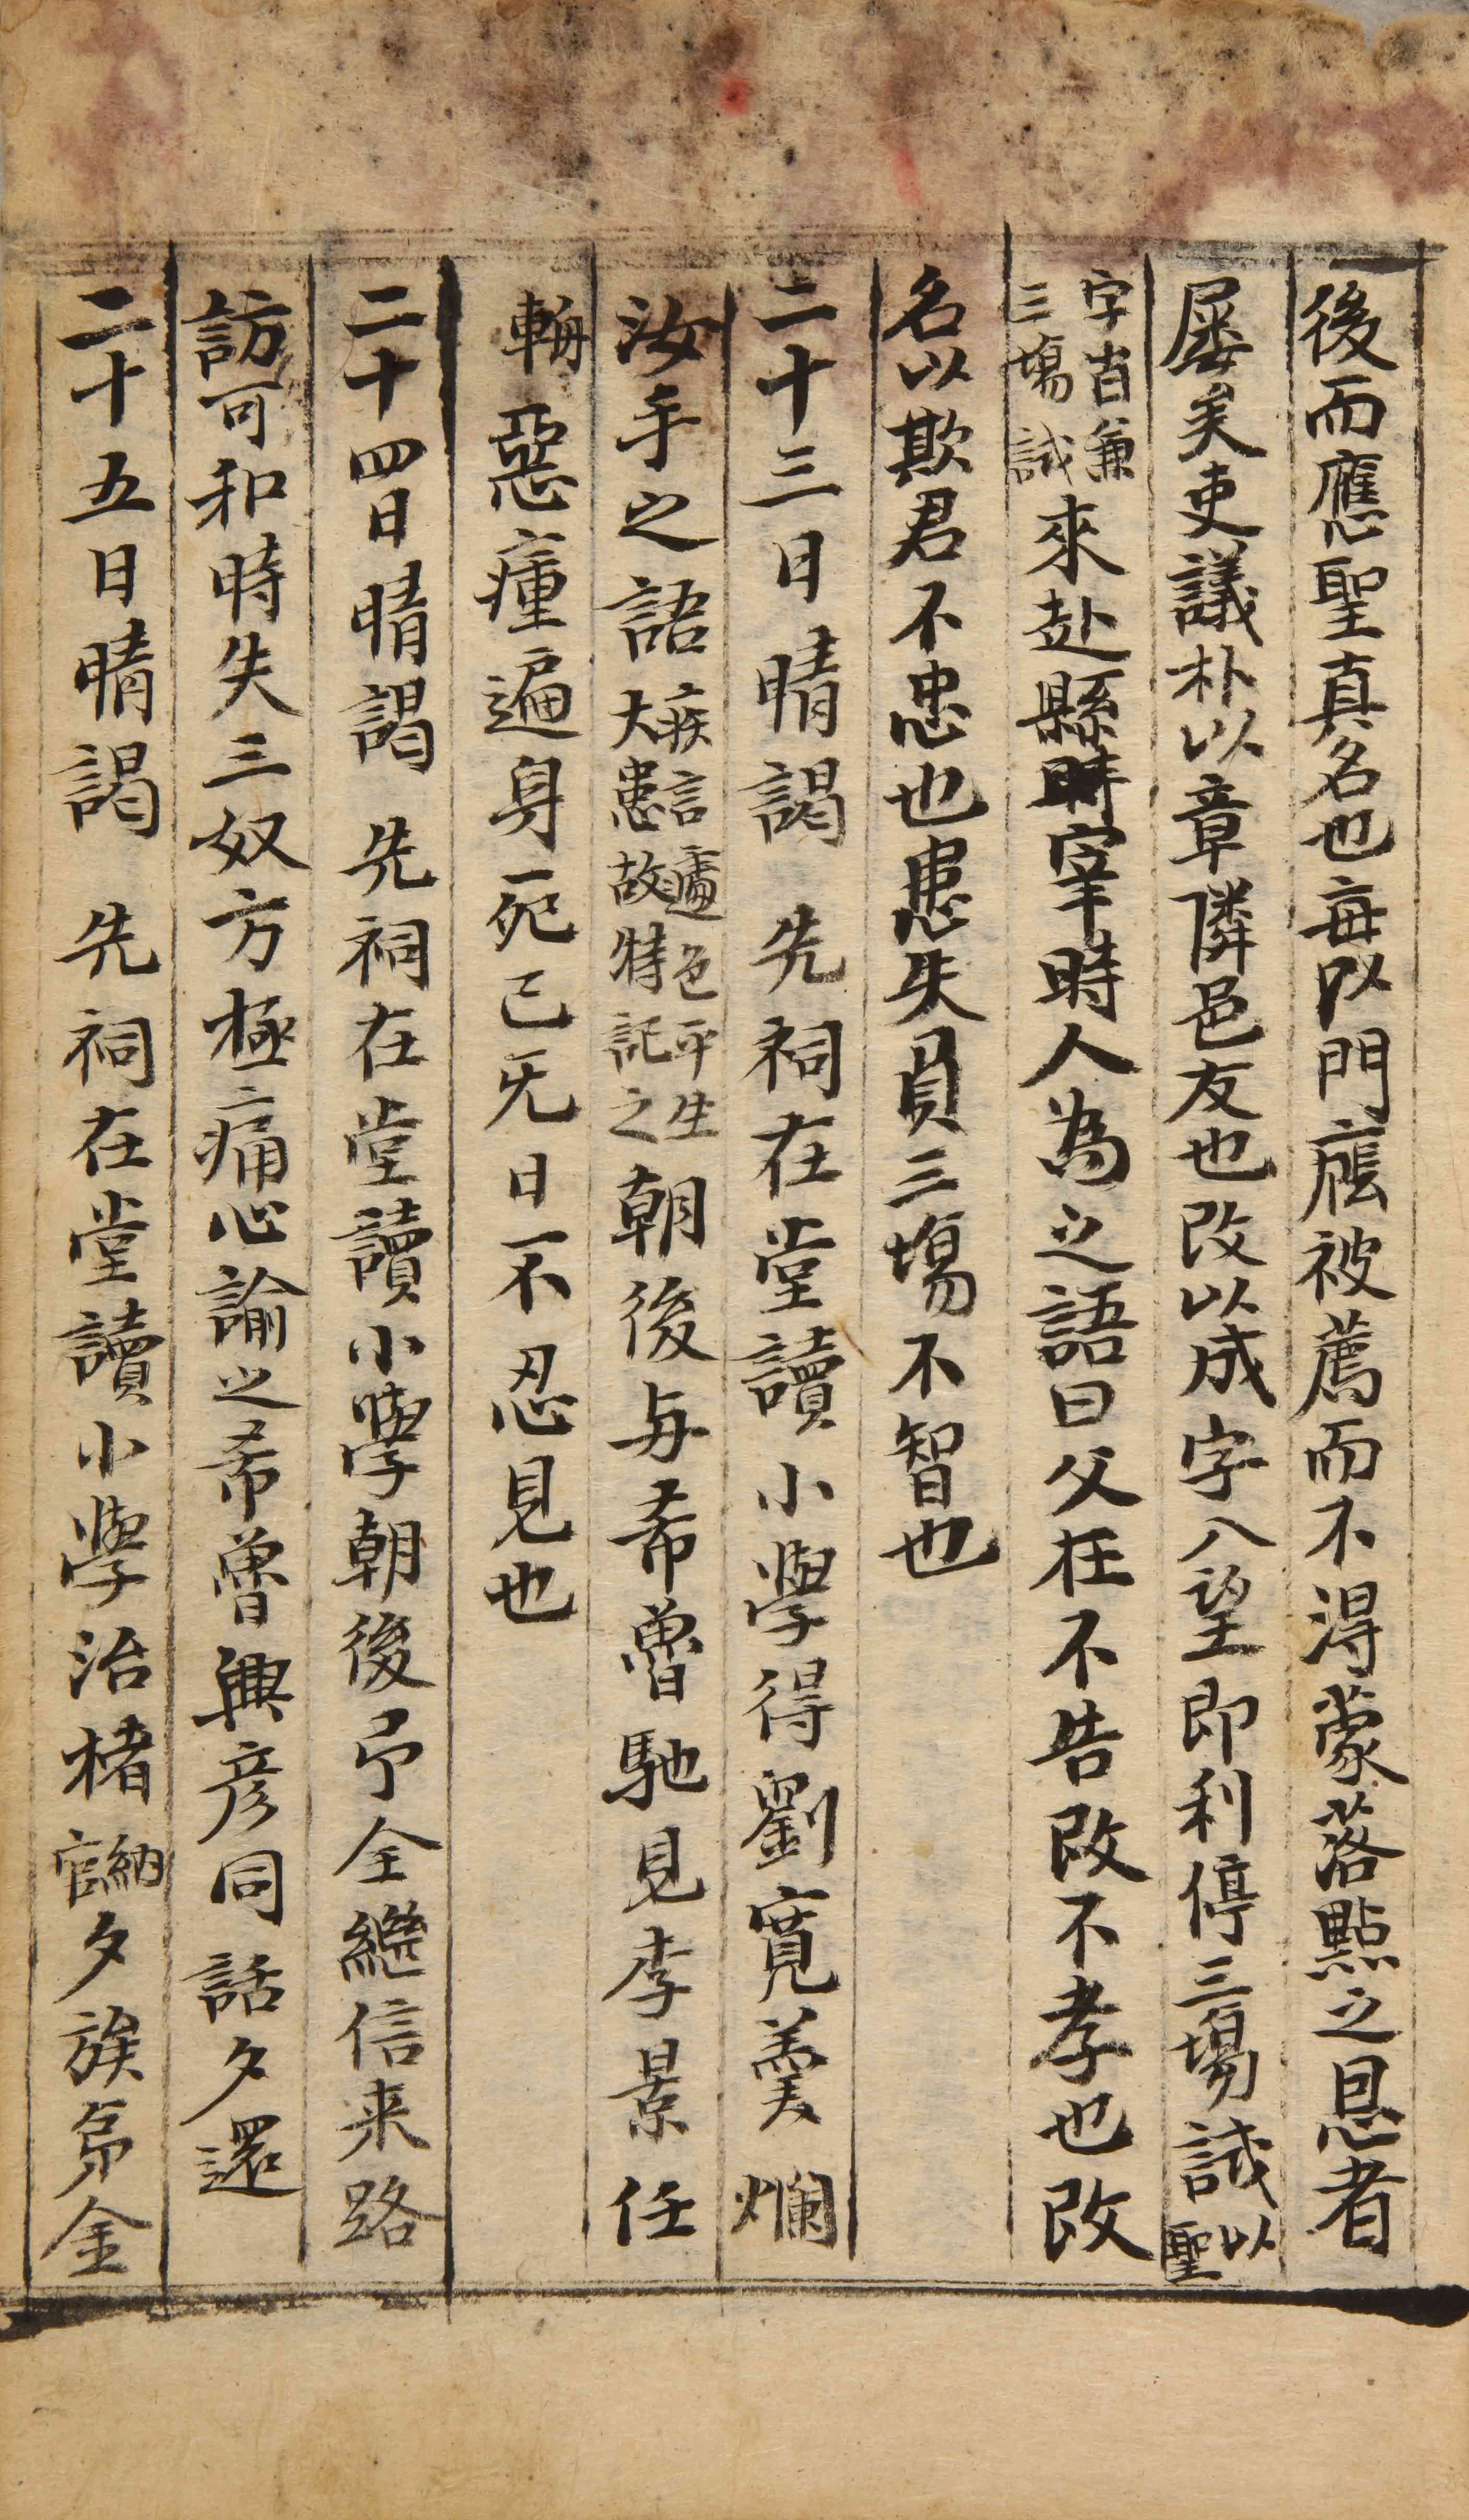 後而應聖真名也每以門廕被薦而不得蒙落點之恩者
屢矣吏議朴以章隣邑友也改以成字入望即利停三場誠以聖
字肯兼三場誠來赴縣時宰時人為之語曰父在不告改不孝也改
名以欺君不忠也患失員三場不智也
二十三日晴謁 先祠在堂讀小學得劉寬羹爛
汝手之語疾言遽色平生大患故特記之朝後与希魯馳見李景任
輈惡瘇遍身死已旡日不忍見也
二十四日晴謁 先祠在堂讀小學朝後弔全繼信来路
訪可和時失三奴方極痛心諭之希魯興彦同話夕還
二十五日晴謁 先祠在堂讀小學治楮納官夕族弟金